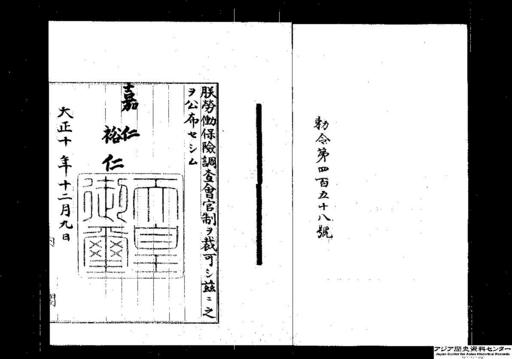 勅令第四百五十八號
朕勞働保險調査會官制ヲ裁可シ茲ニ之
ヲ公布セシム
嘉仁
裕仁
天皇御璽
大正十年十二月九日
内閣
アジア歴史資料センター
Japan Center for Asian Historical Records